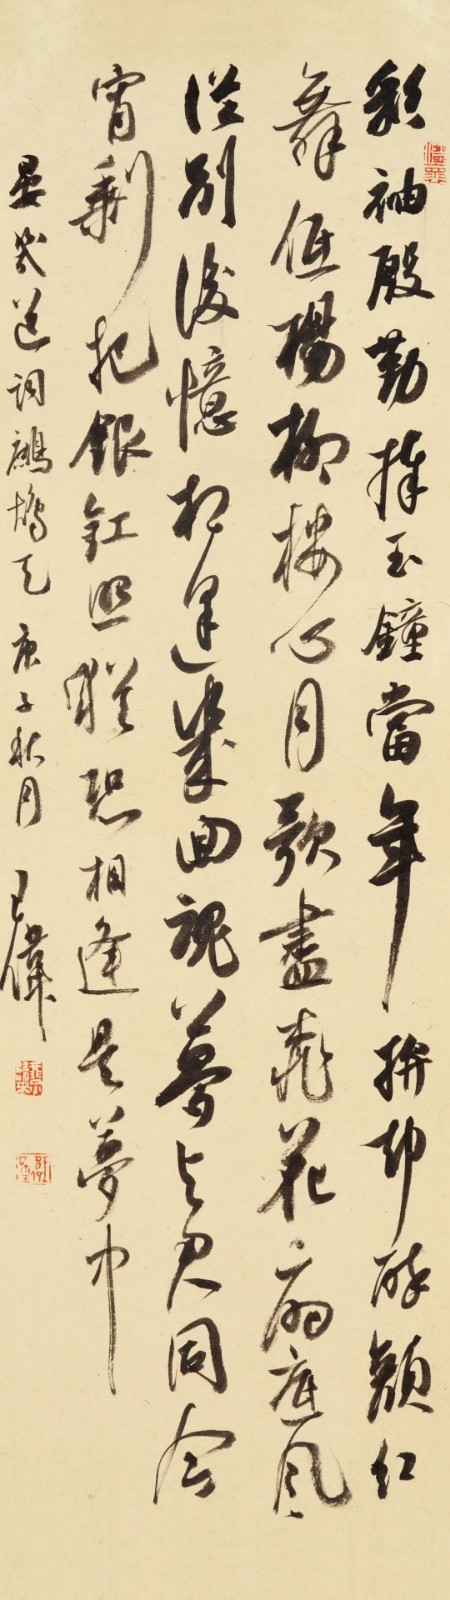 彩袖殷勤捧玉鐘當年拚却醉顏紅
舞低楊柳樓心月歌盡桃花扇底風
從別後憶相逢幾回魂夢與君同今
宵剩把銀釭照猶恐相逢是夢中
晏幾道詞鷓鴣天 庚子秋月 王偉